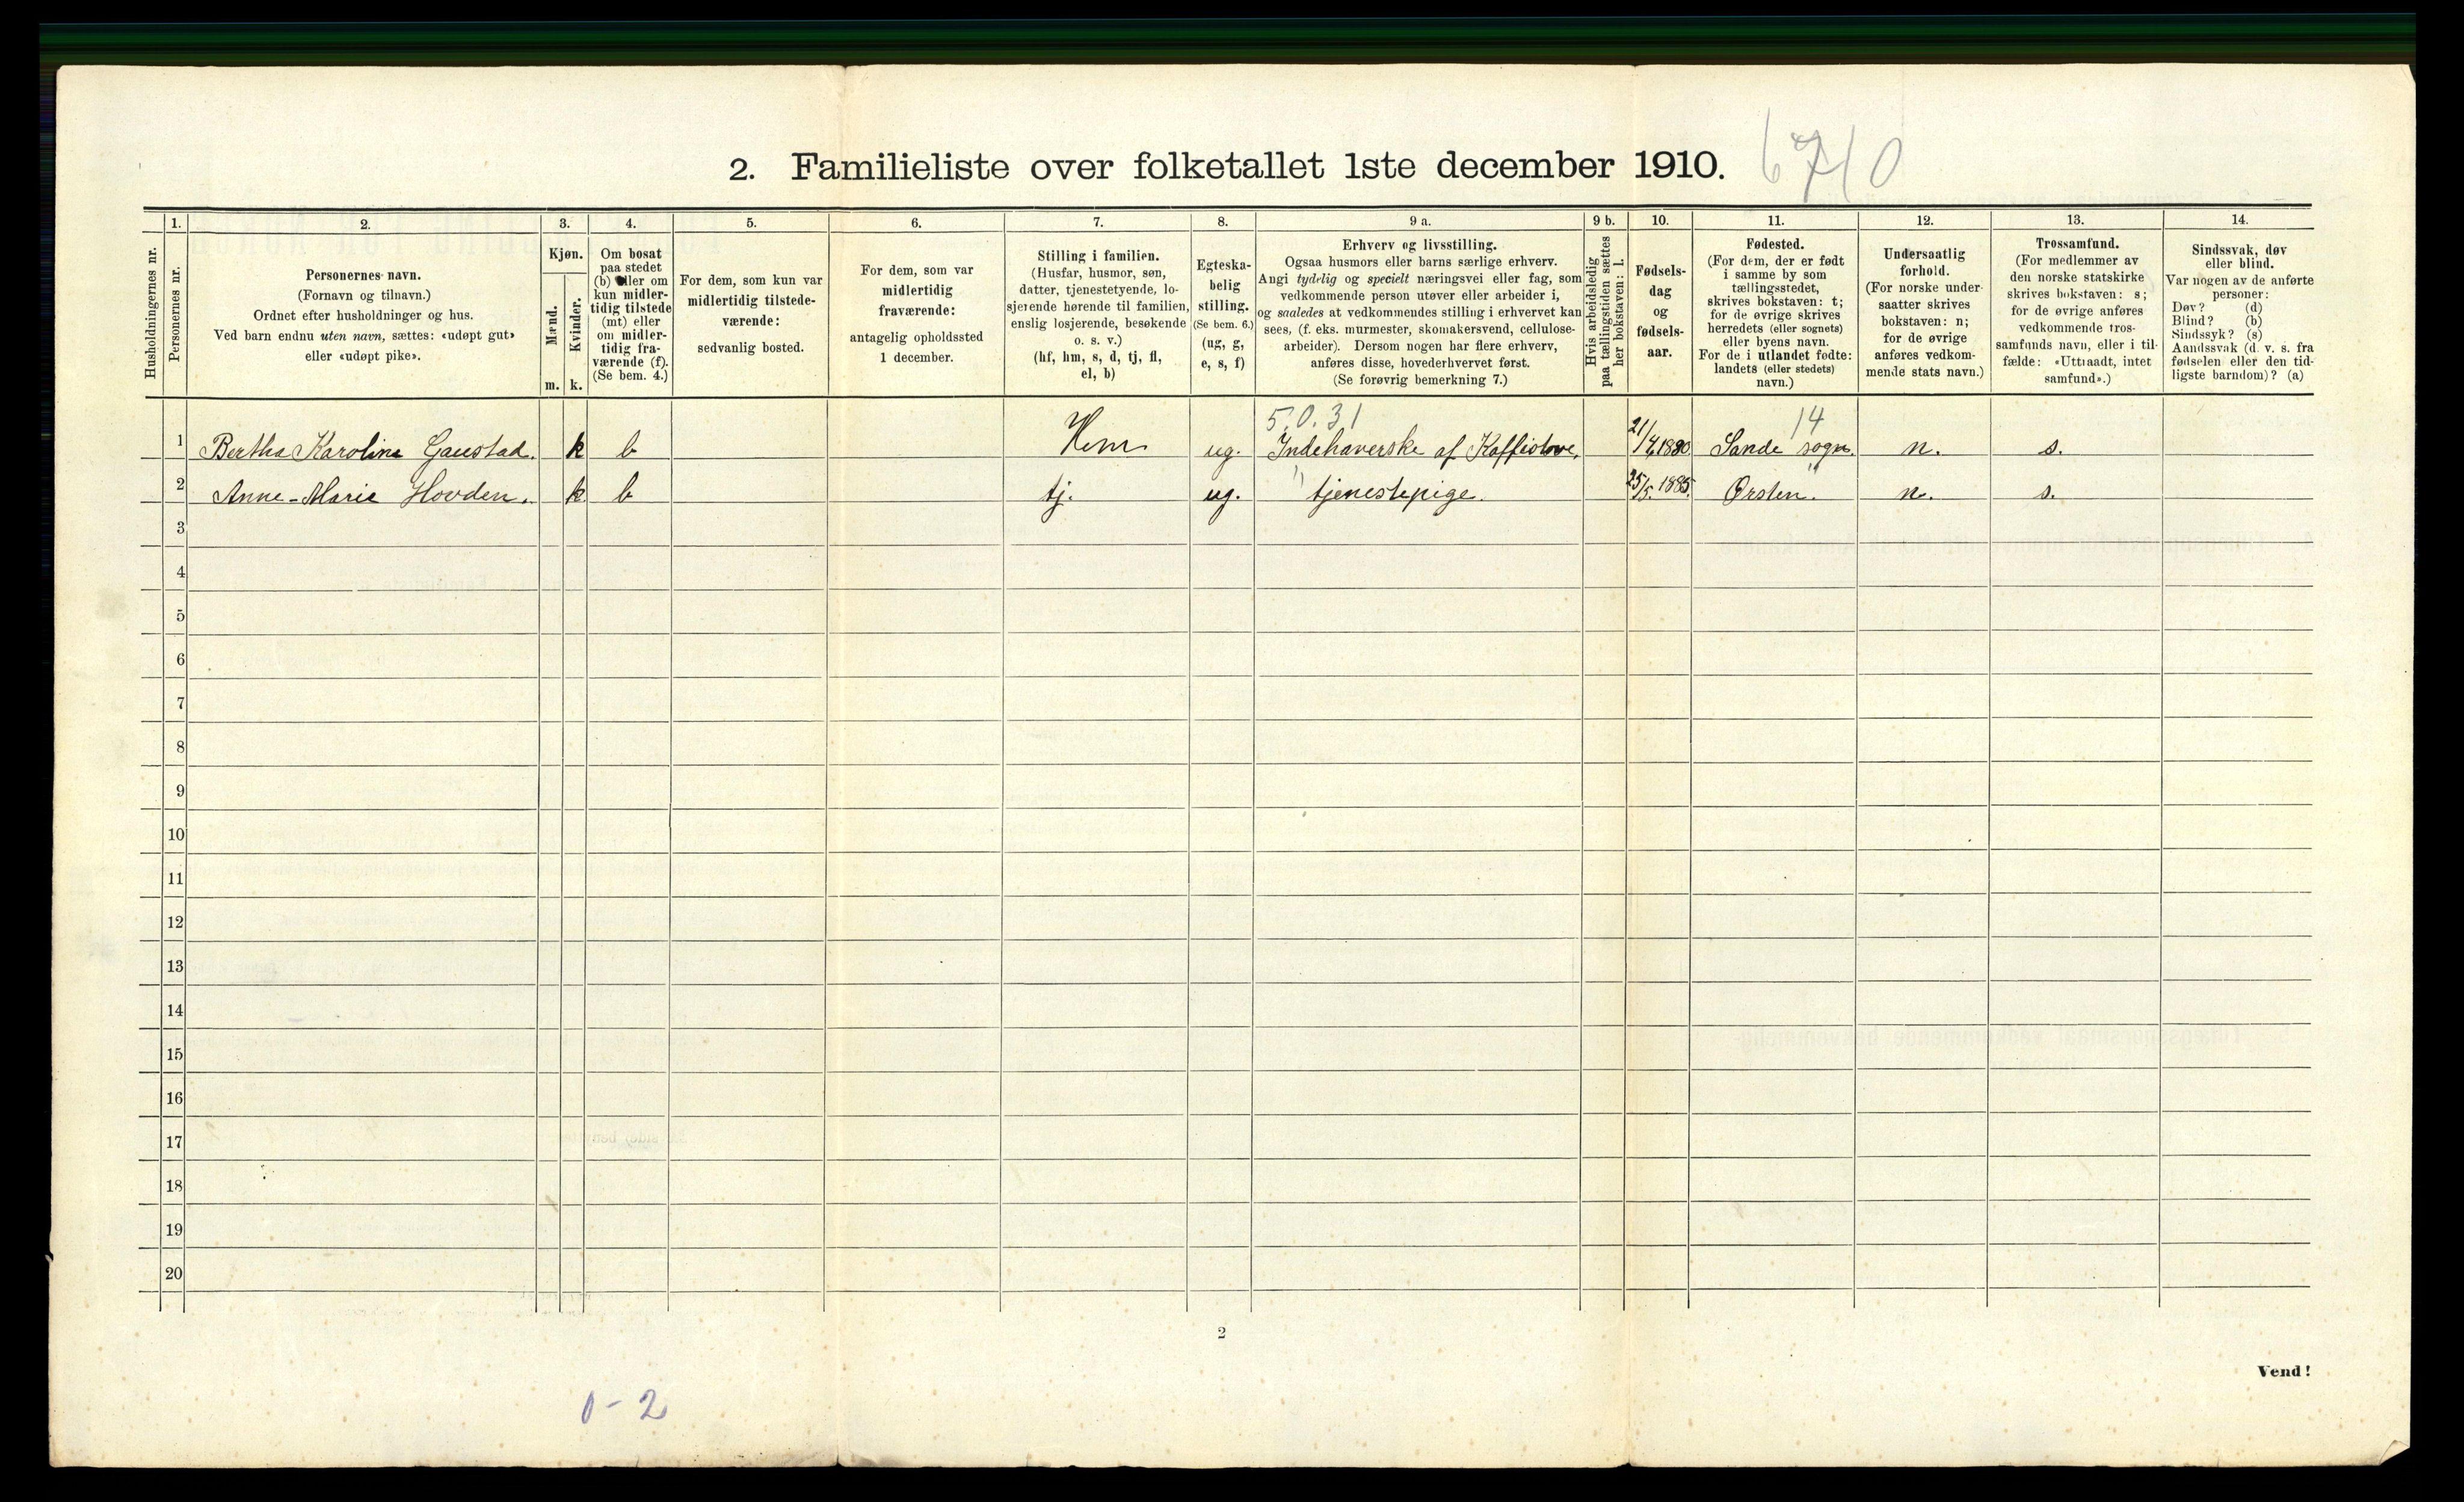 2. Familieliste over folketallet 1ste december 1910. 6710
Husholdningernes nr.
1.
Personernes nr.
2.
Personernes navn.
(Fornavn og tilnavn.)
Ordnet efter husholdninger og hus.
Ved barn endnu uten navn, sættes: «udøpt gut»
eller «udøpt pike».
3.
Kjøn.
Mænd.
Kvinder.
m. k.
4.
Om bosat
paa stedet
(b) eller om
kun midler-
tidig tilstede
(mt) eller
om midler-
tidig fra-
værende (f).
(Se bem. 4.)
5.
For dem, som kun var
midlertidig tilstede-
værende:
sedvanlig bosted.
6.
For dem, som var
midlertidig
fraværende:
antagelig opholdssted
1 december.
7.
Stilling i familien.
(Husfar, husmor, søn,
datter, tjenestetyende, lo-
sjerende hørende til familien,
enslig losjerende, besøkende
o. s. v.)
(hf, hm, s, d, tj, fl,
el, b)
8.
Egteska-
belig
stilling.
(Se bem. 6.)
(ug, g,
e, s, f)
9 a.
Erhverv og livsstilling.
Ogsaa husmors eller barns særlige erhverv.
Angi tydelig og specielt næringsvei eller fag, som
vedkommende person utøver eller arbeider i,
og saaledes at vedkommendes stilling i erhvervet kan
sees, (f. eks. murmester, skomakersvend, cellulose-
arbeider). Dersom nogen har flere erhverv,
anføres disse, hovederhvervet først.
(Se forøvrig bemerkning 7.)
9 b.
Hvis arbeidsledig
paa tællingstiden sættes
her bokstaven: l.
10.
Fødsels-
dag
og
fødsels-
aar.
11.
Fødested.
(For dem, der er født
i samme by som
tællingsstedet,
skrives bokstaven: t;
for de øvrige skrives
herredets (eller sognets)
eller byens navn.
For de i utlandet fødte:
landets (eller stedets)
navn.)
12.
Undersaatlig
forhold.
(For norske under-
saatter skrives
bokstaven: n;
for de øvrige
anføres vedkom-
mende stats navn.)
13.
Trossamfund.
(For medlemmer av
den norske statskirke
skrives bokstaven: s;
for de øvrige anføres
vedkommende tros-
samfunds navn, eller i til-
fælde: «Uttraadt, intet
samfund».)
14.
Sindssvak, døv
eller blind.
Var nogen av de anførte
personer:
Døv? (d)
Blind? (b)
Sindssyk? (s)
Aandssvak (d. v. s. fra
fødselen eller den tid-
ligste barndom)? (a)
5.0.31 14
1 Bertha Karoline Gaustad. k b Hm ug. Indehaverske af Kaffistove, 21/4 1880 Sande sogn. n. s.
2 Anne-Marie Hovden. k b tj. ug. tjenestepige. 25/5. 1885. Ørsten. n. s.
3
4
5
6
7
8
9
10
11
12
13
14
15
16
17
18
19
20
2
Vend!
0-2